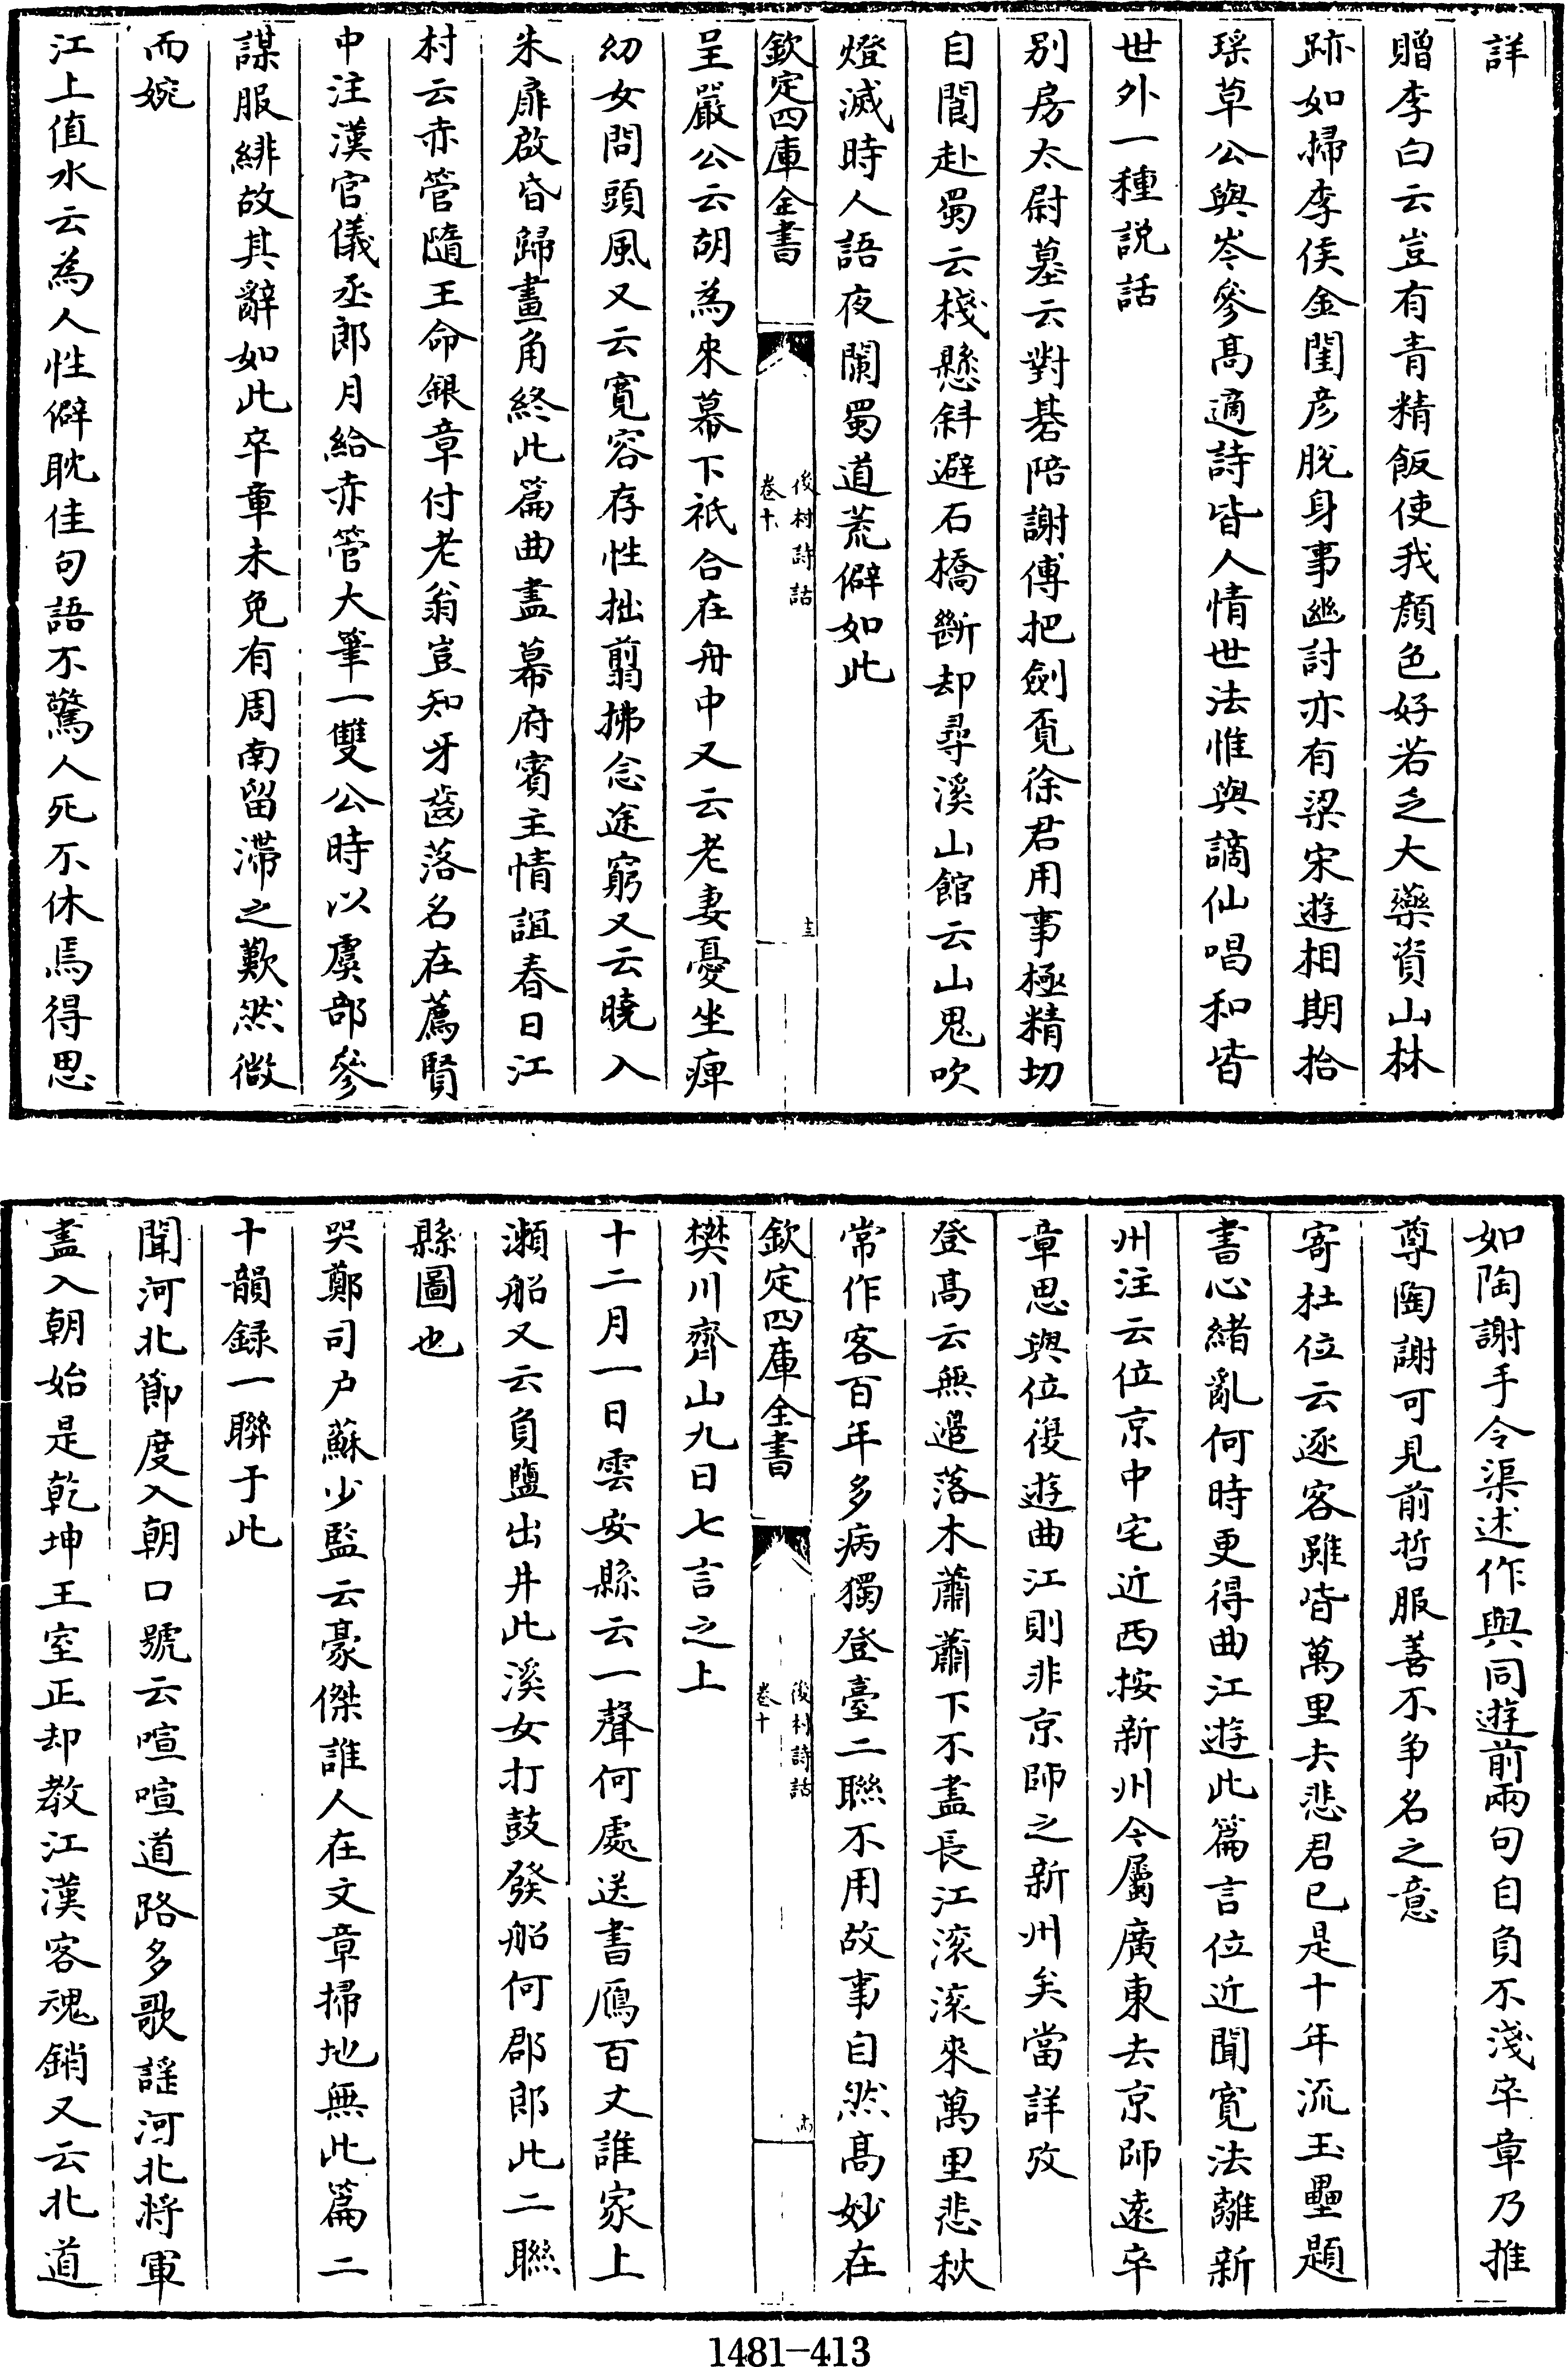 詳
贈李白云豈有青精飯使我顔色好若乏大藥資山林
跡如掃李侯金閨彦脫身事幽討亦有梁宋遊相期拾
瑤草公與岑參髙適詩皆人情世法惟與謫仙唱和皆
世外一種説話
别房太尉墓云對碁陪謝傅把劍覓徐君用事極精切
自閬赴蜀云棧懸斜避石橋斷却尋溪山館云山鬼吹
燈滅時人語夜闌蜀道荒僻如此
欽定四庫全書
後村詩話
卷十
十三
呈嚴公云胡為來幕下祇合在舟中又云老妻憂坐痺
幼女問頭風又云寛容存性拙翦拂念途窮又云曉入
朱扉啟昏歸畫角終此篇曲盡幕府賓主情誼春日江
村云赤管隨王命銀章付老翁豈知牙齒落名在薦賢
中注漢官儀丞郎月給赤管大筆一雙公時以虞部參
謀服緋故其辭如此卒章未免有周南留滯之歎然微
而婉
江上值水云為人性僻耽佳句語不驚人死不休焉得思
如陶謝手令渠述作與同遊前兩句自負不淺卒章乃推
尊陶謝可見前哲服善不争名之意
寄杜位云逐客雖皆萬里去悲君已是十年流玉壘題
書心緒亂何時更得曲江遊此篇言位近聞寛法離新
州注云位京中宅近西按新州今屬廣東去京師遠卒
章思與位復遊曲江則非京師之新州矣當詳攷
登髙云無邉落木蕭蕭下不盡長江滚滚來萬里悲秋
常作客百年多病獨登臺二聯不用故事自然髙妙在
欽定四庫全書
後村詩話
卷十
十四
樊川齊山九日七言之上
十二月一日雲安縣云一聲何處送書鴈百丈誰家上
瀨船又云負鹽出井此溪女打鼓發船何郡郎此二聯
縣圖也
哭鄭司户蘇少監云豪傑誰人在文章掃地無此篇二
十韻録一聯于此
聞河北節度入朝口號云喧喧道路多歌謡河北将軍
盡入朝始是乾坤王室正却教江漢客魂銷又云北道
1481-413